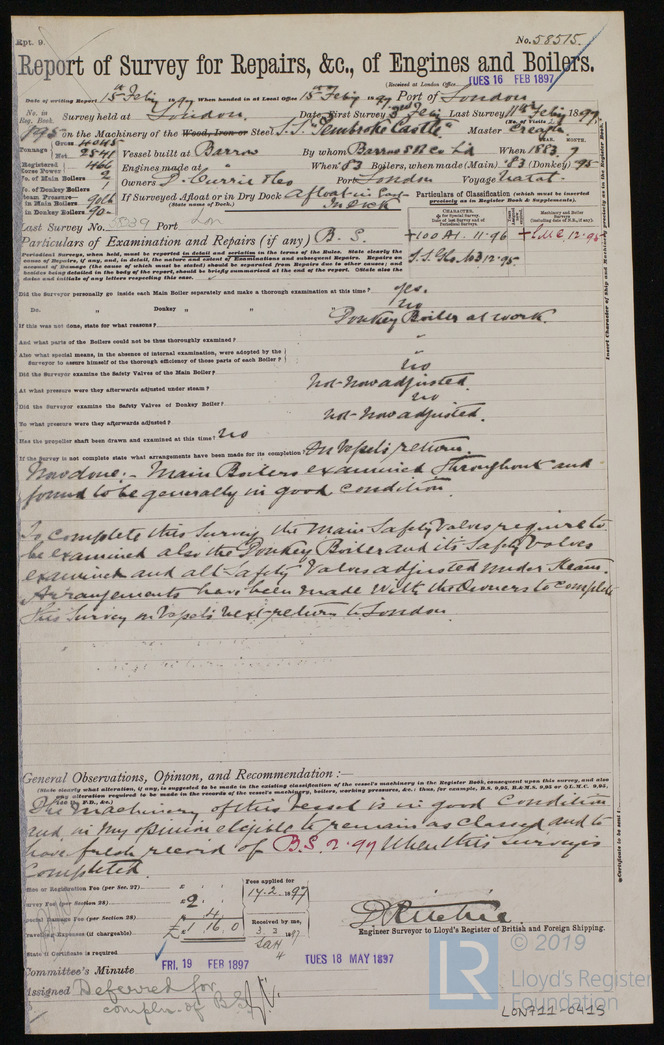 Rpt. 9.
No. 58515.
Report of Survey for Repairs, &c., of Engines and Boilers.
(Received at London Office TUES 16 FEB 1897
Date of writing Report 15th Feby 1897 When handed in at Local Office 15th Feby 1897 Port of London
No. in Reg. Book. Survey held at London. Date, First Survey 3rd Feby Last Survey 11th Feby 1897
(No. of Visits 2)
195 on the Machinery of the Wood, Iron or Steel S.S. "Pembroke Castle" Master
Tonnage Gross 4045 Net 2541 Vessel built at Barrow By whom Barrow S B Co Ld When 1883.
YEAR. MONTH.
Registered Horse Power 466 Engines made at " When '83 Boilers, when made (Main) '83 (Donkey) '95
No. of Main Boilers 2 Owners D. Currie & Co Port London Voyage Natal.
No. of Donkey Boilers 1
Steam Pressure in Main Boilers 90 lb If Surveyed Afloat or in Dry Dock Afloat in East
(State name of Dock.) In Dock
in Donkey Boilers 90
Particulars of Classification (which must be inserted precisely as in Register Book & Supplements).
CHARACTER.
Machinery and Boiler Surveys
Last Survey No. Port Lon
+100 A1. 11.96 +LMC 12.95
Particulars of Examination and Repairs (if any) B. S.
S.S. No 3 12.95
Periodical Surveys, when held, must be reported in detail and seriatim in the terms of the Rules. State clearly the
cause of Repairs, if any, and, in detail, the nature and extent of Examinations and subsequent Repairs. Repairs on
account of Damage (the cause of which must be stated) should be separated from Repairs due to other causes; and
besides being detailed in the body of the report, should be briefly summarised at the end of the report. (State also the
dates and initials of any letters respecting this case.
Did the Surveyor personally go inside each Main Boiler separately and make a thorough examination at this time? yes.
Do. " Donkey " " no
If this was not done, state for what reasons? Donkey Boiler at work.
And what parts of the Boilers could not be thoroughly examined? "
Also what special means, in the absence of internal examination, were adopted by the
Surveyor to assure himself of the thorough efficiency of those parts of each Boiler? "
Did the Surveyor examine the Safety Valves of the Main Boiler? no
At what pressure were they afterwards adjusted under steam? not now adjusted.
Did the Surveyor examine the Safety Valves of Donkey Boiler? no
To what pressure were they afterwards adjusted? not now adjusted.
Has the propeller shaft been drawn and examined at this time? no
If the Survey is not complete state what arrangements have been made for its completion? On Vessel's return.
Now done:- Main Boilers examined throughout and
found to be generally in good condition.
To complete this Survey the Main Safety Valves require to
be examined also the Donkey Boiler and its Safety Valves
examined and all Safety Valves adjusted under steam.
Arrangements have been made with the Owners to complete
this Survey on Vessel's next return to London.
General Observations, Opinion, and Recommendation:—
(State clearly what alteration, if any, is suggested to be made in the existing classification of the vessel's machinery in the Register Book, consequent upon this survey, and also
any alteration required to be made in the records of the vessel's machinery, boilers, working pressures, &c.: thus, for example, B.S. 9,95, B & M.S. 9,95 or L.M.C. 9,95,
The machinery of this vessel is in good condition
and in my opinion eligible to remain as classed and to
have fresh record of B.S. 2.97 when this survey is
completed.
Fees applied for
17.2.1897
Survey Fee (per Section 28) £ 2
Special Damage Fee (per Section 28)
Travelling Expenses (if chargeable) £ 1 16 0
Received by me,
State if Certificate is required
D Ritchie.
Engineer Surveyor to Lloyd's Register of British and Foreign Shipping.
Committee's Minute FRI. 19 FEB 1897 TUES 18 MAY 1897
Assigned Deferred for
compln. of B.S.
Insert Character of Ship and Machinery precisely as in Register Book.
Certificate to be sent to
LR © 2019
Lloyd's Register
Foundation
LON711-0415